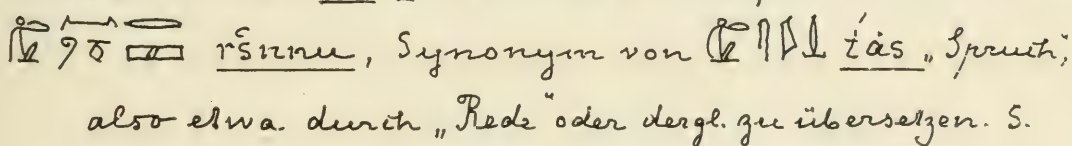 ršnnu, Synonym von t́ás „Spruch“,
also etwa durch „Rede“ oder dergl. zu übersetzen. S.